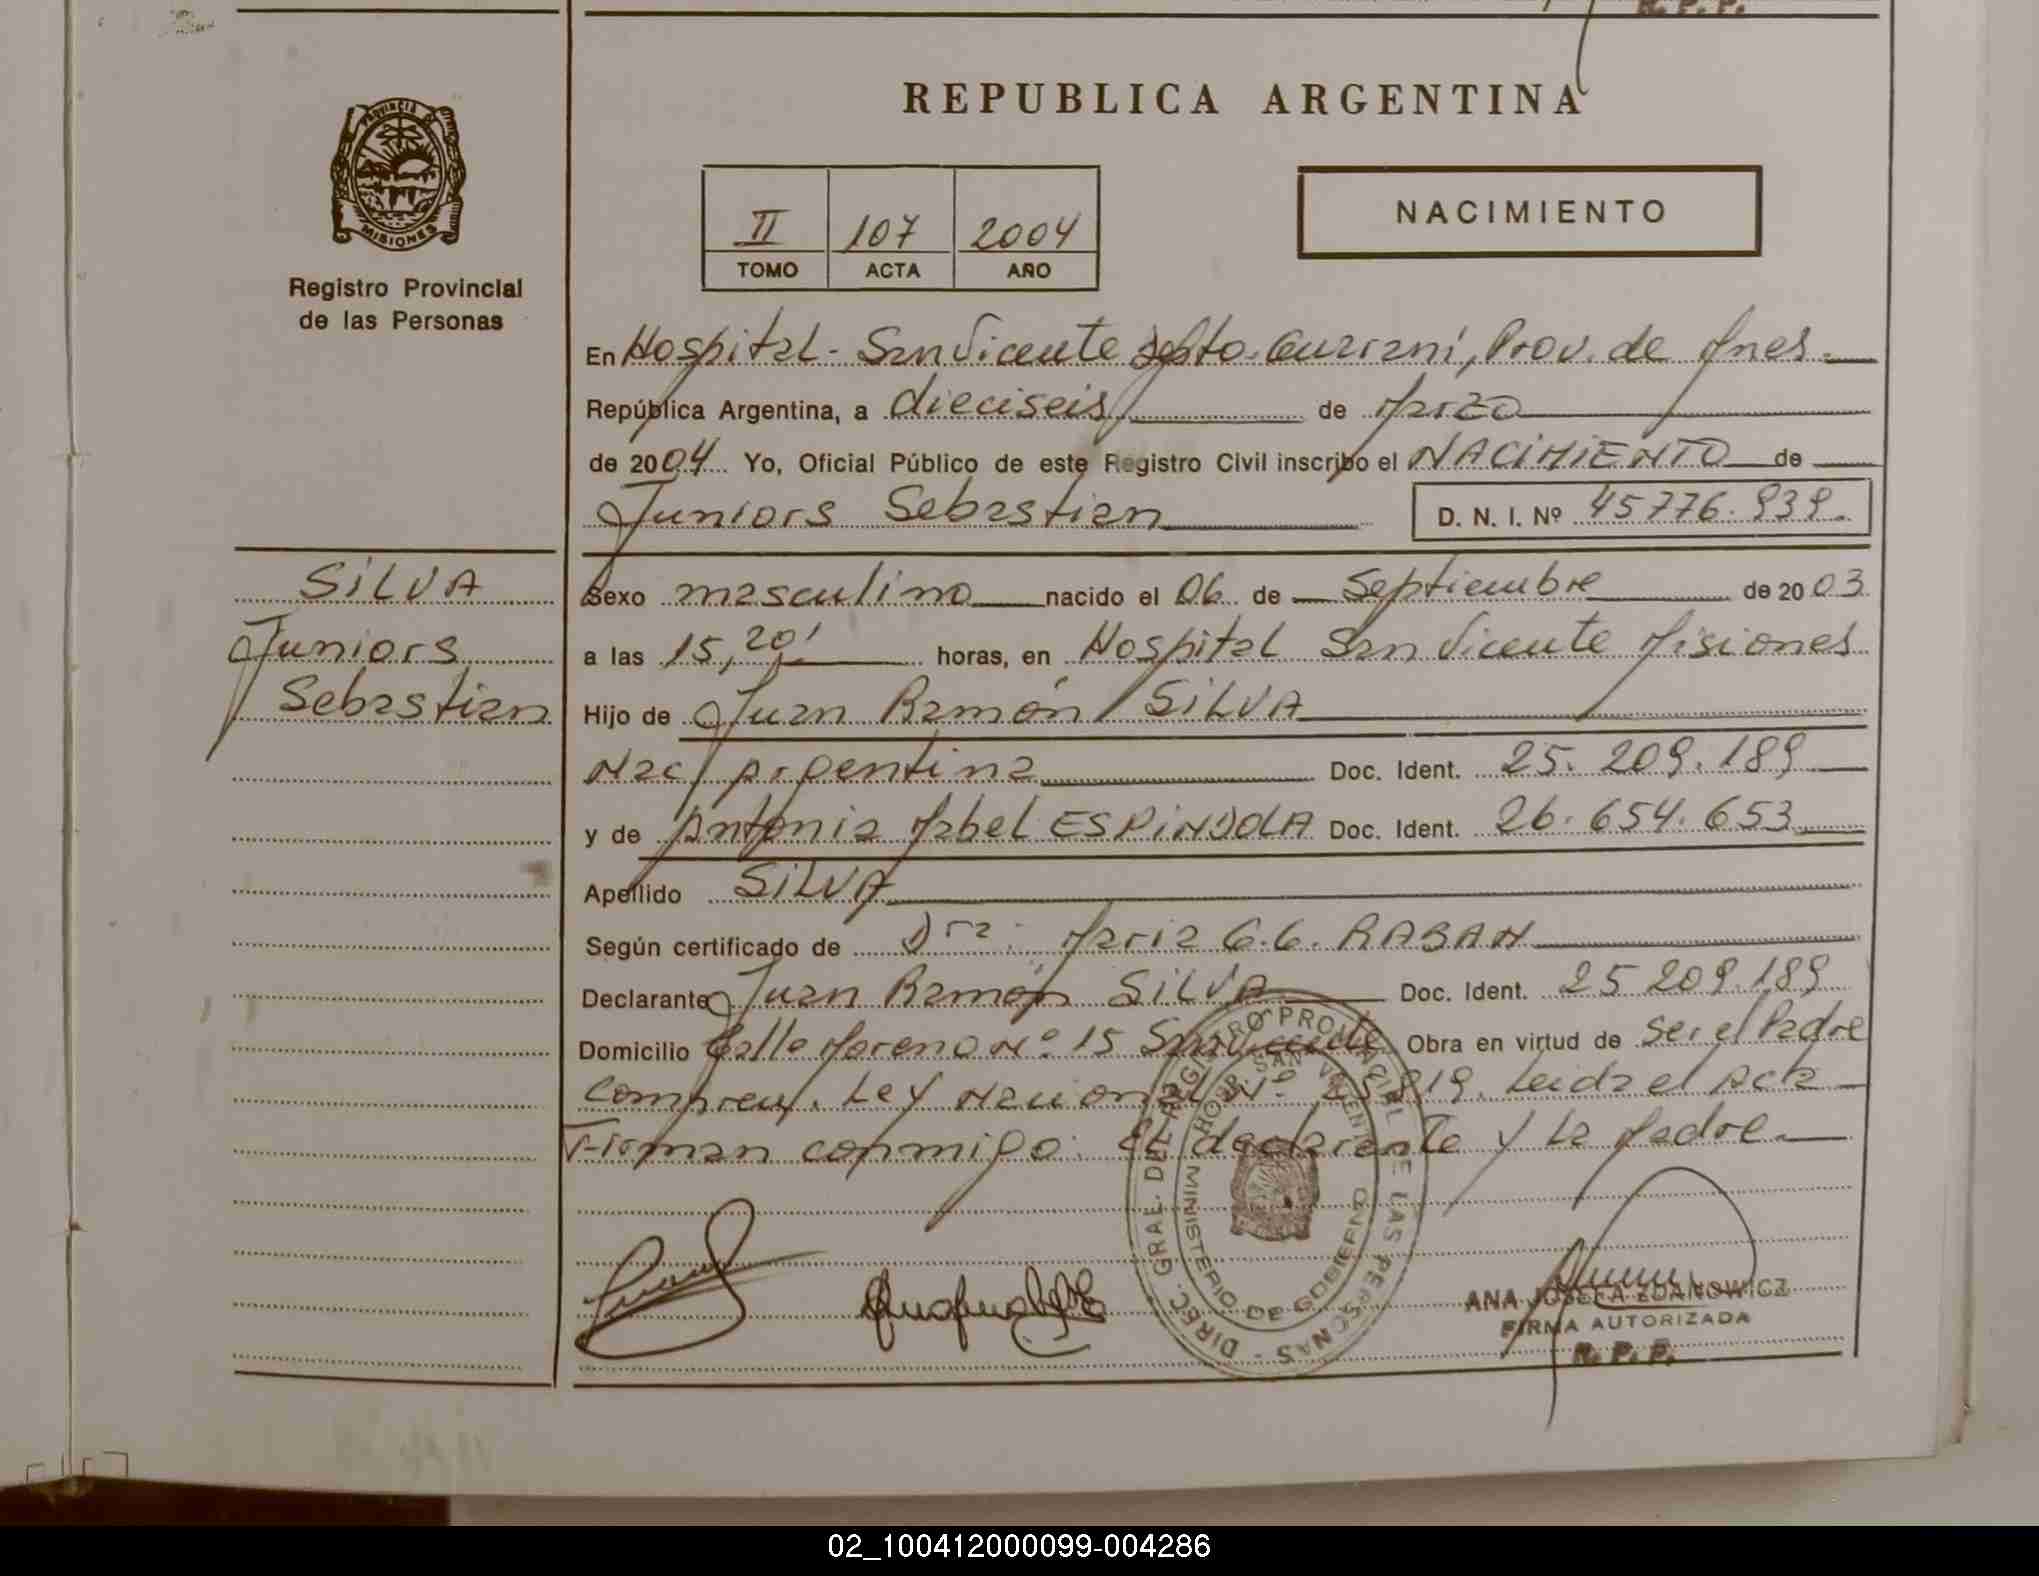 R. P. P.
REPUBLICA ARGENTINA
PROVINCIA DE
MISIONES
Registro Provincial
de las Personas
II 107 2004
TOMO ACTA AÑO
NACIMIENTO
En Hospital - San Vicente Dpto. Guaraní, Prov. de Mnes.
República Argentina, a dieciseis de Marzo
de 2004 Yo, Oficial Público de este Registro Civil inscribo el NACIMIENTO de
Juniors Sebastian D. N. I. Nº 45776.939.
SILVA
Juniors
Sebastian
Sexo masculino nacido el 06 de Septiembre de 2003
a las 15,20' horas, en Hospital San Vicente Misiones
Hijo de Juan Ramón SILVA
Nac/ Argentina Doc. Ident. 25.209.189
y de Antonia Mabel ESPINDOLA Doc. Ident. 26.654.653
Apellido SILVA
Según certificado de Dra: Maria G.G. RABAN
Declarante Juan Ramón SILVA Doc. Ident. 25 209.189
Domicilio Calle Moreno Nº 15 San Vicente Obra en virtud de Ser el Padre
Compren. Ley Nacional Nº 25819. Leida el Acta
Firman conmigo: El declarante y La Madre
DIREC. GRAL. DEL REGISTRO PROVINCIAL DE LAS PERSONAS -
HOSP. SAN VICENTE
MINISTERIO DE GOBIERNO
ANA JOSEFA ZDANOWICZ
FIRMA AUTORIZADA
R. P. P.
02_100412000099-004286